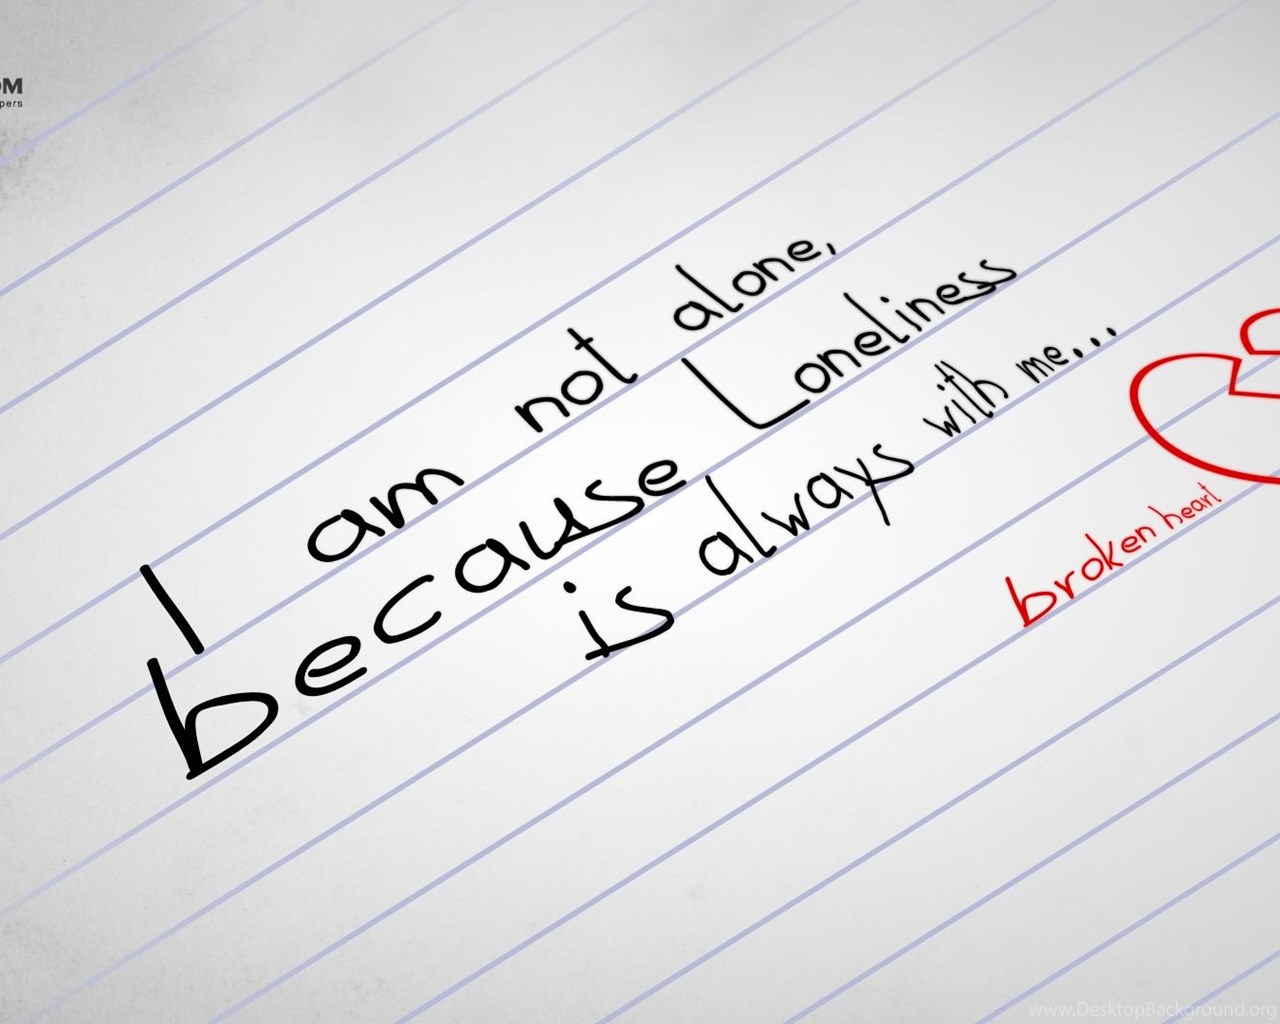 OM
pers
I am not alone,
because Loneliness
is always with me...
broken heart
www.DesktopBackground.org